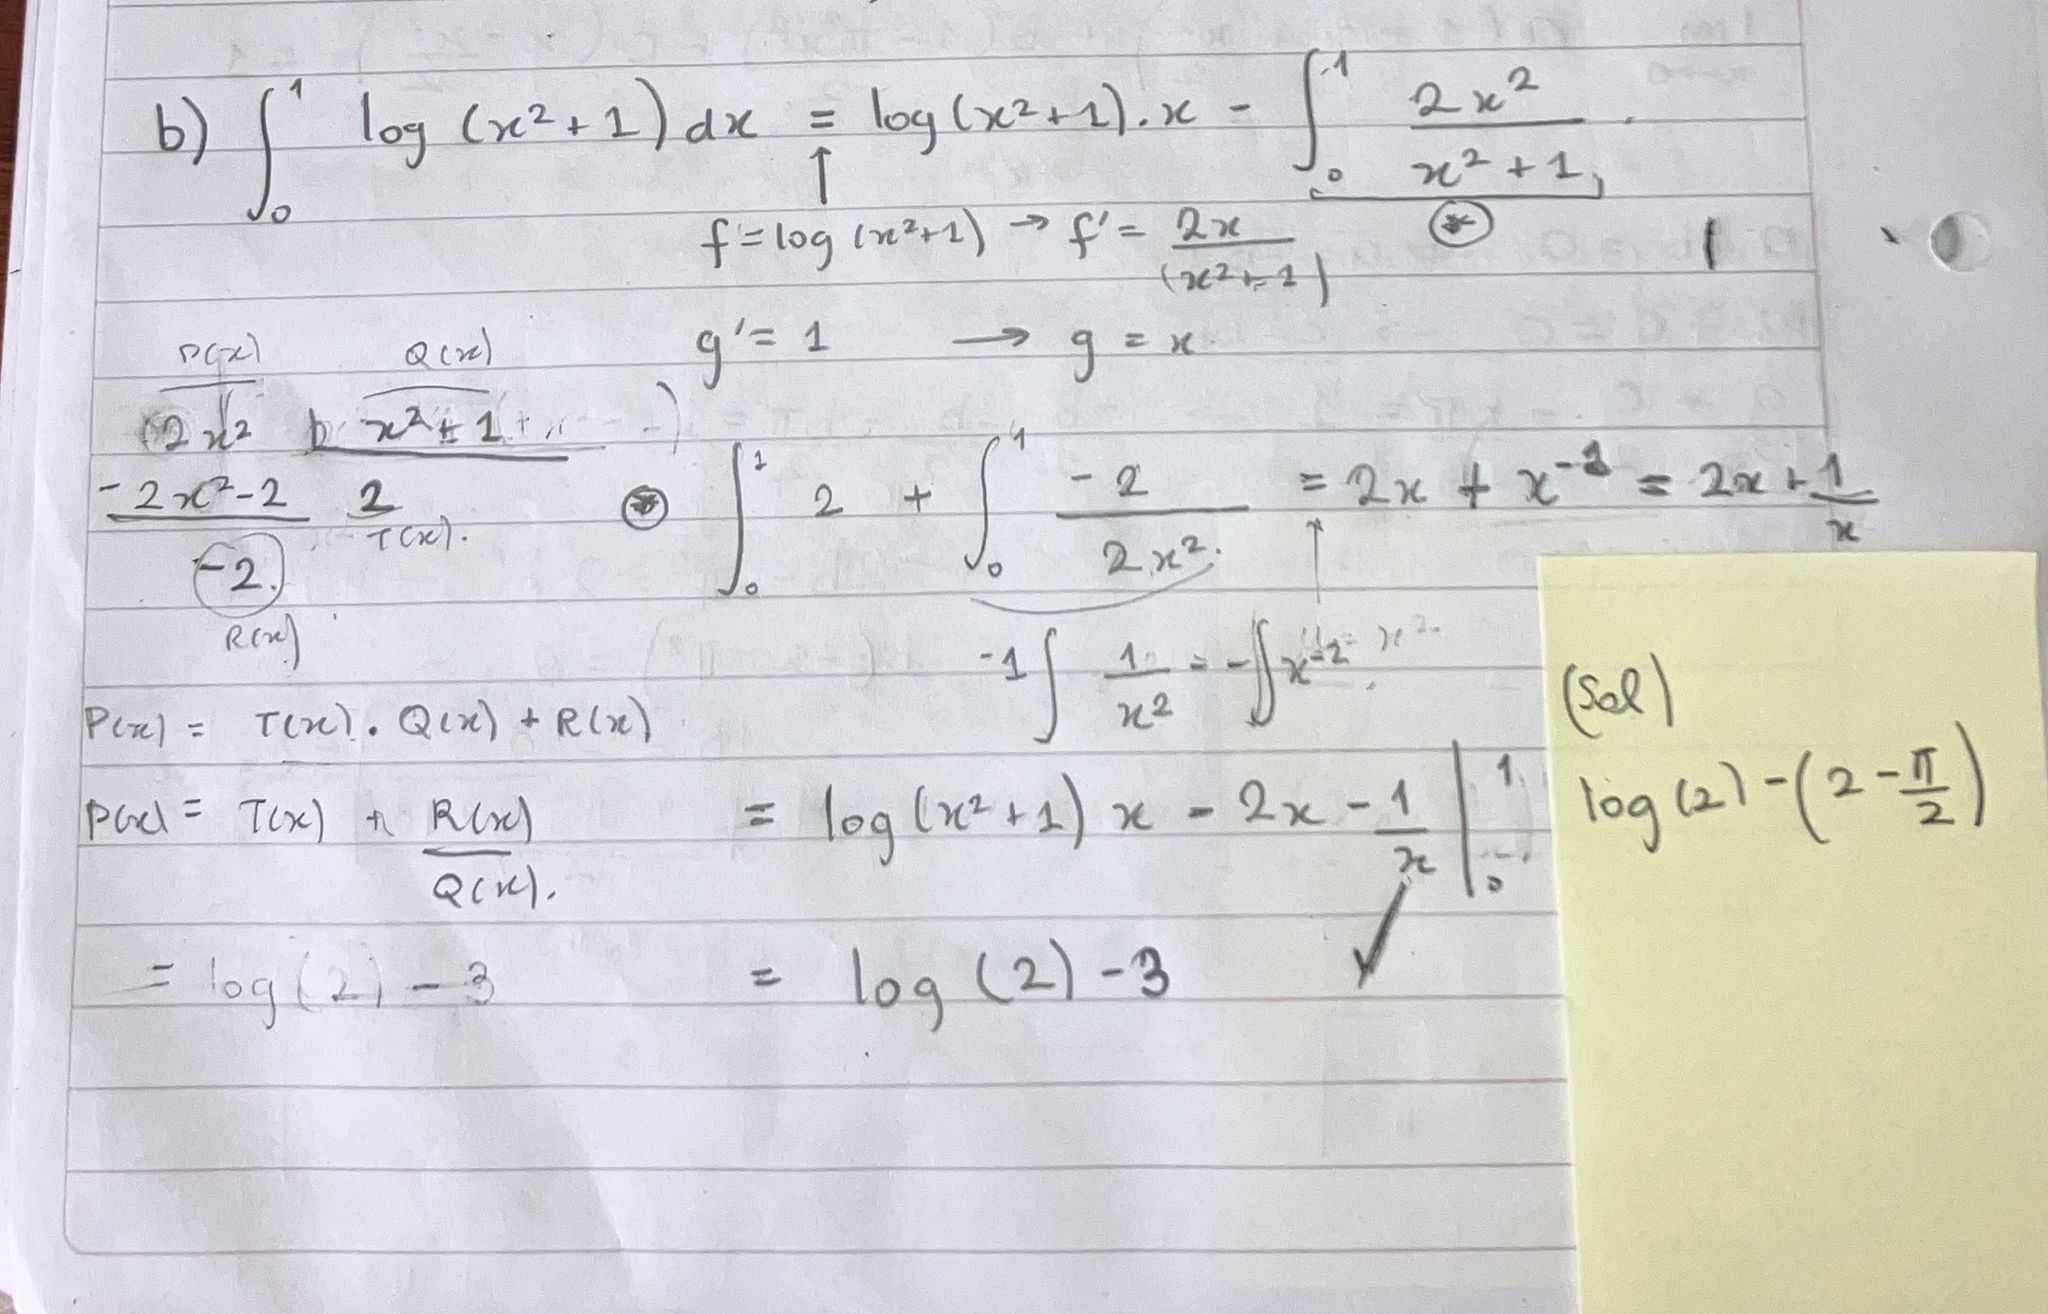 b) ∫₀¹ log (x²+1) dx = log(x²+1).x - ∫₀¹ 2x² / x²+1
↑ *
f = log (x²+1) → f' = 2x / (x²+1)
g' = 1 → g = x
P(x) Q(x)
2x² x²+1
-2x²-2 2
T(x).
-2
R(x)
* ∫₀¹ 2 + ∫₀¹ -2 / 2x² = 2x + x⁻¹ = 2x + 1/x
-1 ∫ 1/x² = -∫ x⁻²
P(x) = T(x) . Q(x) + R(x)
P(x) = T(x) + R(x) / Q(x).
= log(x²+1) x - 2x - 1/x |₀¹
= log(2) - 3
= log (2) - 3
(Sol)
log(2) - (2 - π/2)